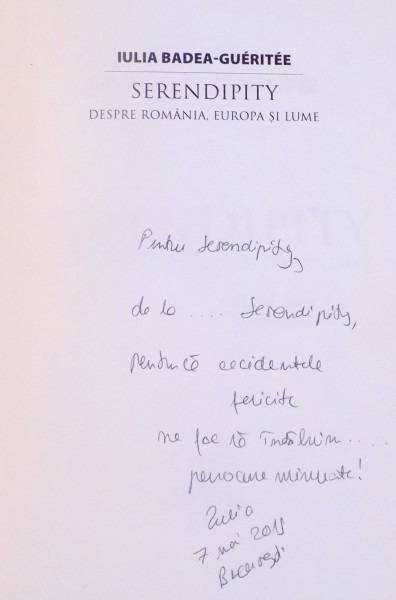 IULIA BADEA-GUÉRITÉE
SERENDIPITY
DESPRE ROMÂNIA, EUROPA ȘI LUME
Pentru Serendipity,
de la .... Serendipity,
pentru că accidentele
fericite
ne fac să întâlnim....
persoane minunate!
Iulia
7 mai
București